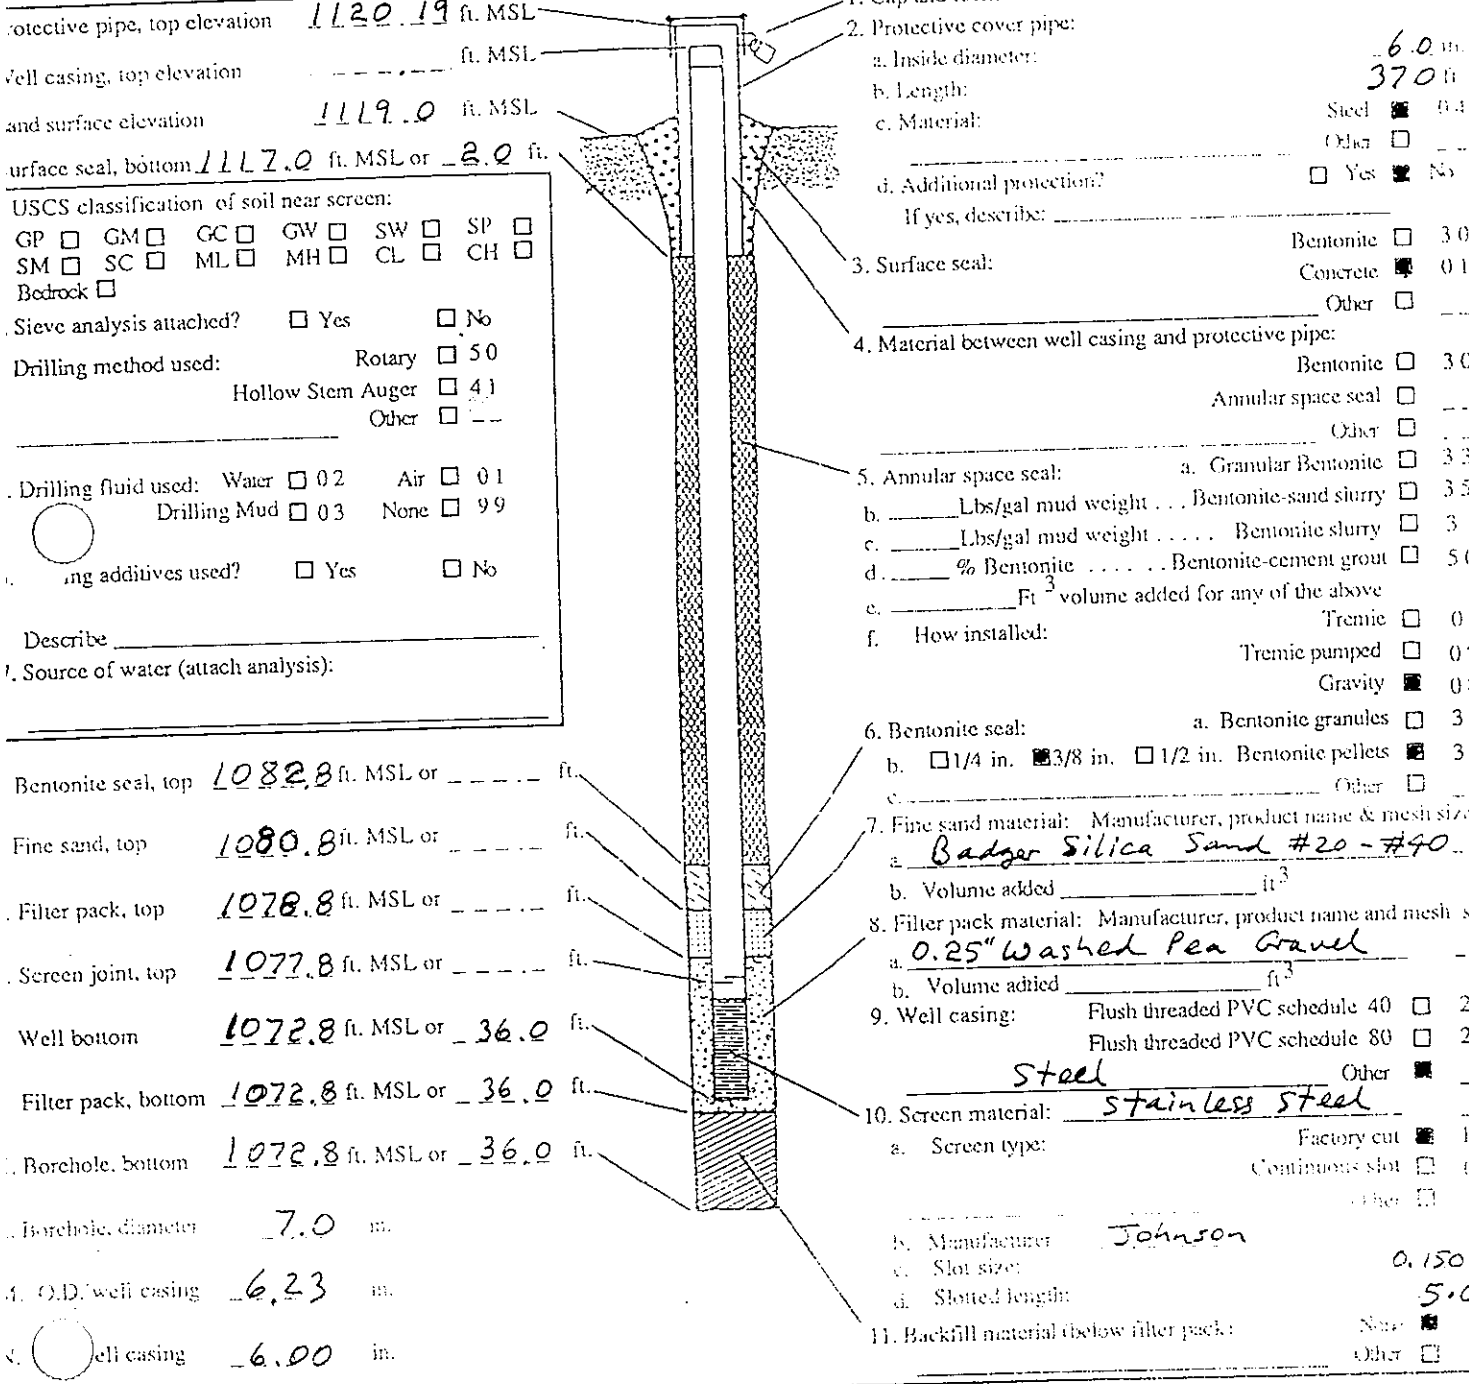 rotective pipe, top elevation 1120.19 ft. MSL
Well casing, top elevation ft. MSL
and surface elevation 1119.0 ft. MSL
urface seal, bottom 1117.0 ft. MSL or 2.0 ft.
USCS classification of soil near screen:
GP ☐ GM ☐ GC ☐ GW ☐ SW ☐ SP ☐
SM ☐ SC ☐ ML ☐ MH ☐ CL ☐ CH ☐
Bedrock ☐
. Sieve analysis attached? ☐ Yes ☐ No
Drilling method used: Rotary ☐ 50
Hollow Stem Auger ☐ 41
Other ☐ _ _
. Drilling fluid used: Water ☐ 02 Air ☐ 01
Drilling Mud ☐ 03 None ☐ 99
ing additives used? ☐ Yes ☐ No
Describe
7. Source of water (attach analysis):
Bentonite seal, top 1082.8 ft. MSL or _ _ _ . _ ft.
Fine sand, top 1080.8 ft. MSL or _ _ _ . _ ft.
. Filter pack, top 1078.8 ft. MSL or _ _ _ . _ ft.
. Screen joint, top 1077.8 ft. MSL or _ _ _ . _ ft.
Well bottom 1072.8 ft. MSL or 36.0 ft.
Filter pack, bottom 1072.8 ft. MSL or 36.0 ft.
. Borehole, bottom 1072.8 ft. MSL or 36.0 ft.
. Borehole, diameter 7.0 in.
O.D. well casing 6.23 in.
ell casing 6.00 in.
2. Protective cover pipe:
a. Inside diameter: 6.0 in.
b. Length: 370 ft
c. Material: Steel ■ 04
Other ☐
d. Additional protection? ☐ Yes ■ No
If yes, describe:
3. Surface seal: Bentonite ☐ 30
Concrete ■ 01
Other ☐
4. Material between well casing and protective pipe:
Bentonite ☐ 30
Annular space seal ☐
Other ☐
5. Annular space seal: a. Granular Bentonite ☐ 33
b. ____ Lbs/gal mud weight . . . Bentonite-sand slurry ☐ 35
c. ____ Lbs/gal mud weight . . . . . Bentonite slurry ☐ 3
d. ____ % Bentonite . . . . . . Bentonite-cement grout ☐ 50
e. ____ Ft³ volume added for any of the above
f. How installed: Tremie ☐ 0
Tremie pumped ☐ 0
Gravity ■ 0
6. Bentonite seal: a. Bentonite granules ☐ 3
b. ☐ 1/4 in. ■ 3/8 in. ☐ 1/2 in. Bentonite pellets ■ 3
c. Other ☐
7. Fine sand material: Manufacturer, product name & mesh size
a. Badger Silica Sand #20 - #40
b. Volume added ____ ft³
8. Filter pack material: Manufacturer, product name and mesh s
a. 0.25" Washed Pea Gravel
b. Volume added ____ ft³
9. Well casing: Flush threaded PVC schedule 40 ☐ 2
Flush threaded PVC schedule 80 ☐ 2
Steel Other ■
10. Screen material: Stainless Steel
a. Screen type: Factory cut ■ 1
Continuous slot ☐
Other ☐
b. Manufacturer Johnson
c. Slot size: 0.150
d. Slotted length: 5.0
11. Backfill material (below filter pack): None ■
Other ☐